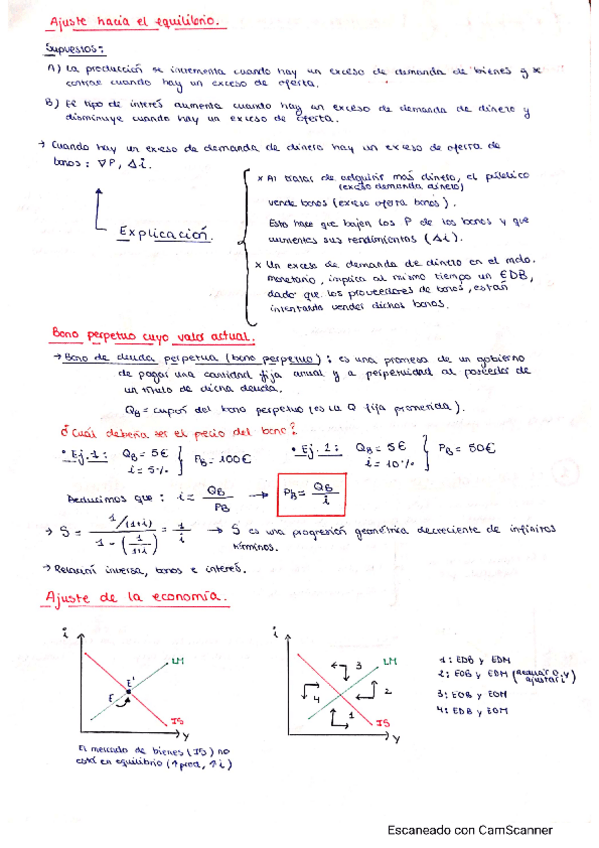 Ajuste hacia el equilibrio.
Supuestos:
A) La producción se incrementa cuando hay un exceso de demanda de bienes y se
contrae cuando hay un exceso de oferta.
B) El tipo de interés aumenta cuando hay un exceso de demanda de dinero y
disminuye cuando hay un exceso de oferta.
→ Cuando hay un exceso de demanda de dinero hay un exceso de oferta de
bonos: ∇P, Δi.
Explicación.
x Al tratar de adquirir más dinero, el público
(exceso demanda dinero)
vende bonos (exceso oferta bonos).
Esto hace que bajen los P de los bonos y que
aumenten sus rendimientos (Δi).
x Un exceso de demanda de dinero en el mdo.
monetario, implica al mismo tiempo un EDB,
dado que los proveedores de bonos, están
intentando vender dichos bonos.
Bono perpetuo cuyo valor actual.
→ Bono de deuda perpetua (bono perpetuo): es una promesa de un gobierno
de pagar una cantidad fija anual y a perpetuidad al poseedor de
un título de dicha deuda.
QB = cupón del bono perpetuo (es la Q fija prometida).
¿Cuál debería ser el precio del bono?
• Ej. 1: QB = 5€ i = 5% } PB = 100€ • Ej. 1: QB = 5€ i = 10% } PB = 50€
Deducimos que: i = QB / PB → PB = QB / i
→ S = 1/(1+i) / 1 - (1/1+i) = 1/i → S es una progresión geométrica decreciente de infinitos
términos.
→ Relación inversa, bonos e interés.
Ajuste de la economía.
i
LM
E'
E
IS
Y
El mercado de bienes (IS) no
está en equilibrio (↑prod, ↑i)
i
LM
3
2
4
1
IS
Y
1: EDB y EDM
2: EOB y EDM
3: EOB y EOM
4: EDB y EOM
Escaneado con CamScanner